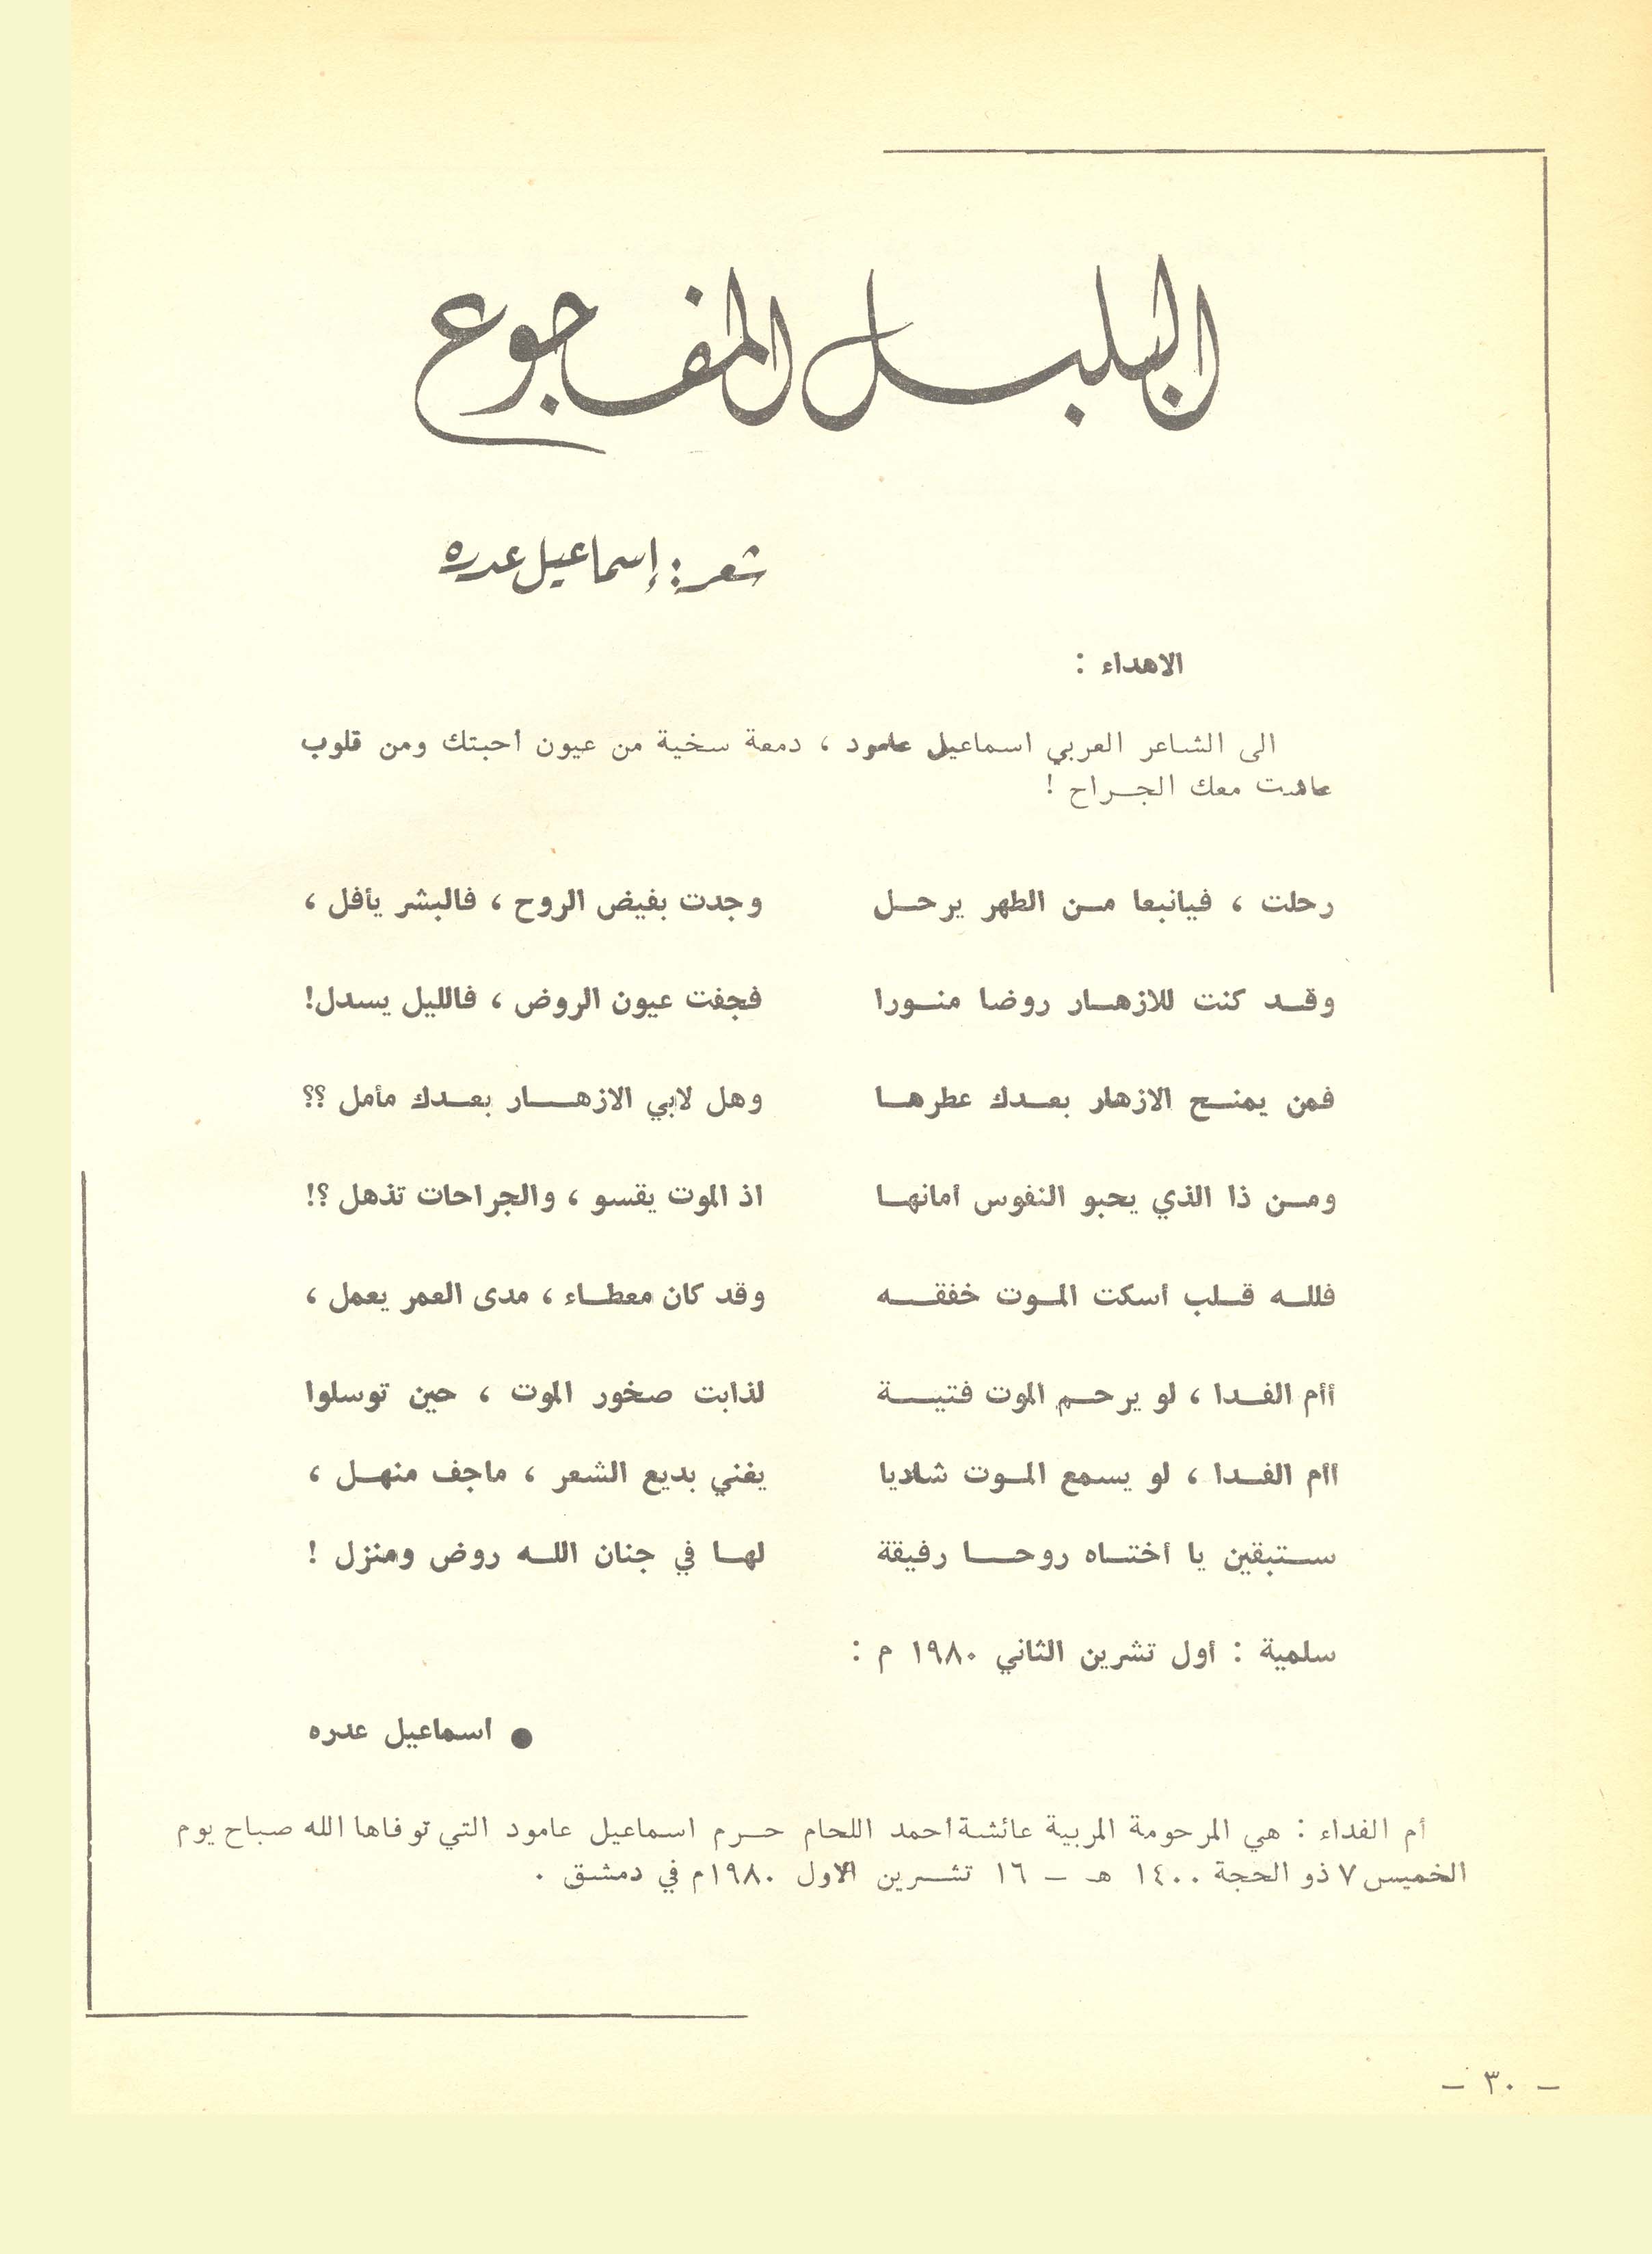 البلبل المفجوع
شعر: إسماعيل عدره
الاهداء :
الى الشاعر العربي اسماعيل عامود ، دمعة سخية من عيون احبتك ومن قلوب
عاهدت معك الجراح !
رحلت ، فيانبعا من الطهر يرحل وجدت بفيض الروح ، فالبشر يأفل ،
وقد كنت للازهار روضا منورا فجفت عيون الروض ، فالليل يسدل!
فمن يمنح الازهار بعدك عطرها وهل لابي الازهار بعدك مأمل ؟؟
ومن ذا الذي يحبو النفوس أمانها اذ الموت يقسو ، والجراحات تذهل ؟!
فلله قلب أسكت الموت خفقه وقد كان معطاء ، مدى العمر يعمل ،
أأم الفدا ، لو يرحم الموت فتية لذابت صخور الموت ، حين توسلوا
أأم الفدا ، لو يسمع الموت شاديا يغني بديع الشعر ، ماجف منهل ،
ستبقين يا أختاه روحا رفيقة لها في جنان الله روض ومنزل !
سلمية : أول تشرين الثاني ١٩٨٠ م :
● اسماعيل عدره
أم الفداء : هي المرحومة المربية عائشة احمد اللحام حرم اسماعيل عامود التي توفاها الله صباح يوم
الخميس ٧ ذو الحجة ١٤٠٠ هـ – ١٦ تشرين الاول ١٩٨٠م في دمشق .
– ٣٠ –